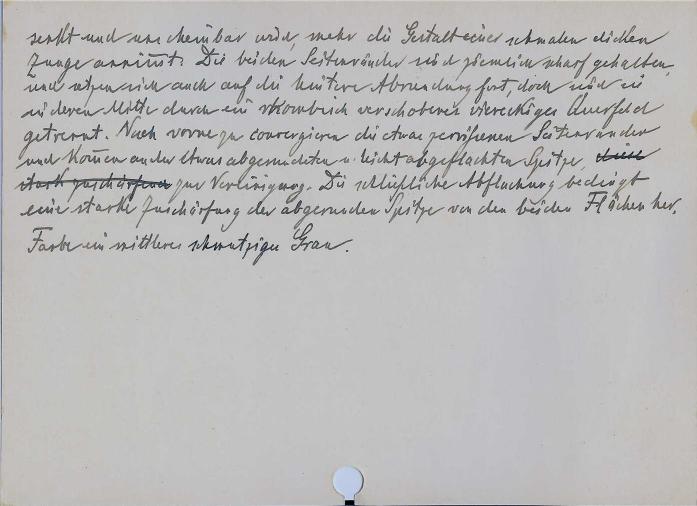 senkt und unscheinbar wird, mehr die Gestalt einer schmalen dicken
Zunge annimmt. Die beiden Seitenränder sind ziemlich scharf gehalten,
und setzen sich auch auf die hintere Abrundung fort, doch sind sie
in deren Mitte durch ein rhombisch verschobenes viereckiges Querfeld
getrennt. Nach vorne zu convergieren die etwas zerrissenen Seitenränder
und kommen an der etwas abgerundeten u. leicht abgeflachten Spitze, diese
stark zuschärfend zur Vereinigung. Die schließliche Abflachung bedingt
eine starke Zuschärfung der abgerundeten Spitze von den beiden Flächen her.
Farbe ein mittleres schmutziges Grau.